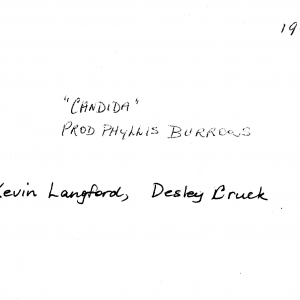 19
"CANDIDA"
PROD PHYLLIS BURROWS
Kevin Langford, Desley Cruck